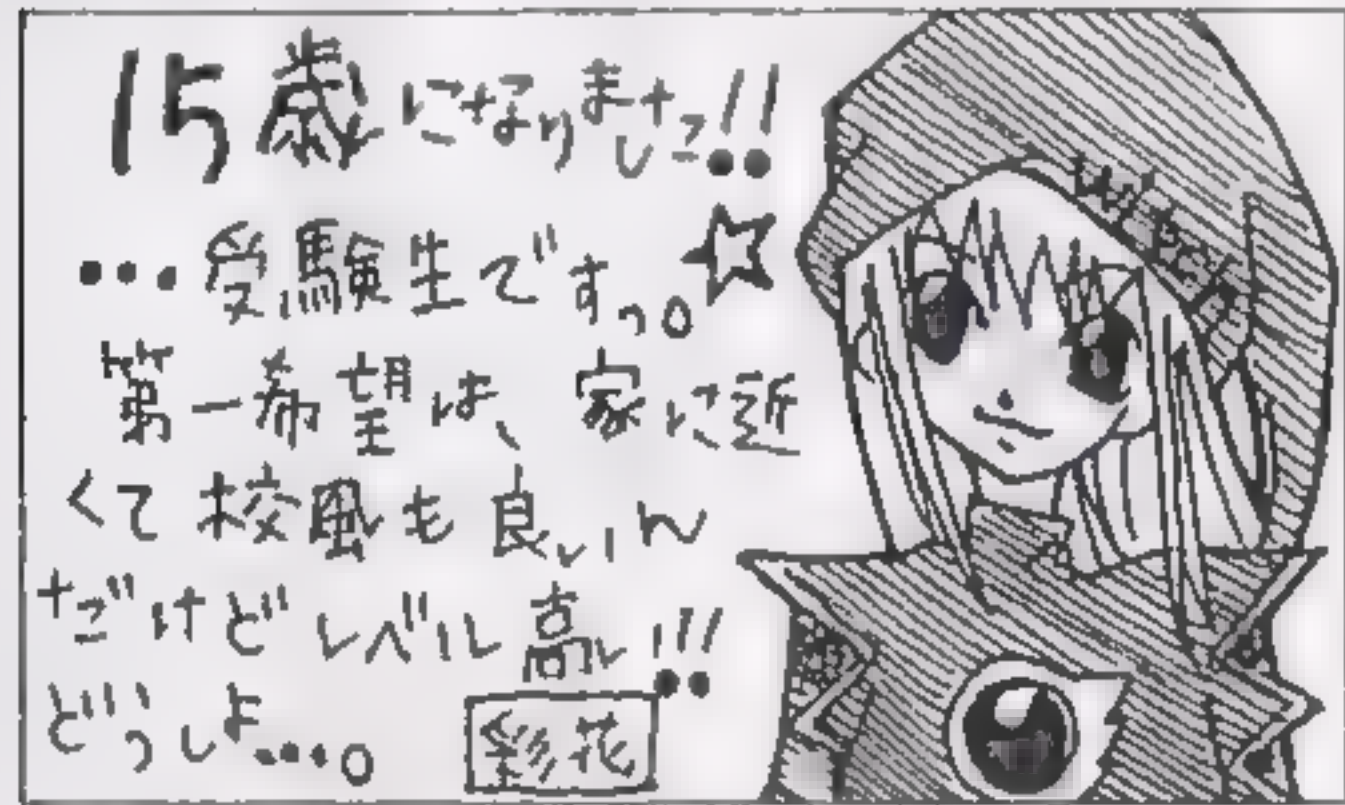 15歳になりました!!
…受験生ですっ。☆
第一希望は、家に近
くて校風も良いん
だけどレベル高い!!
どうしよ…。
彩花